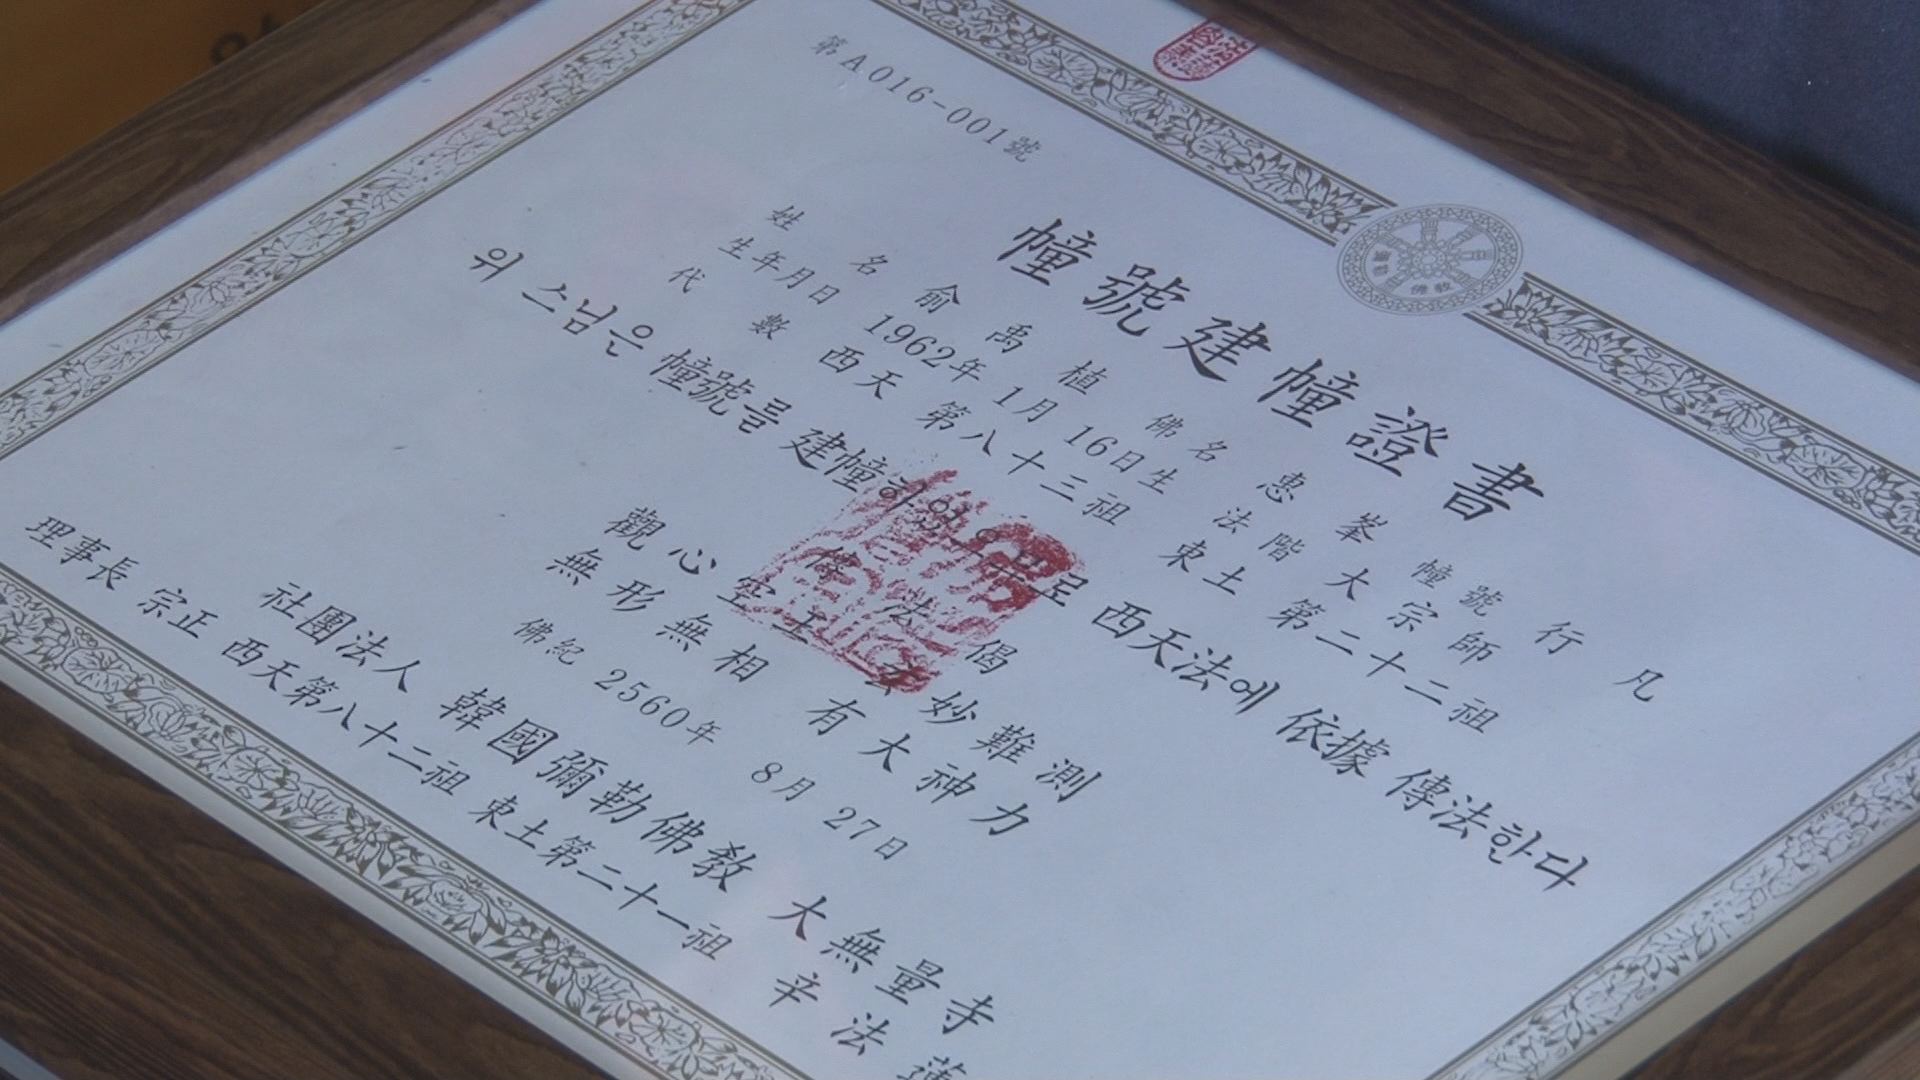 第A016-001號
幢號建幢證書
姓 名 俞 禹 植 佛 名 惠 峯 幢號 行 凡
生年月日 1962年 1月 16日生 法 階 大 宗 師
代 數 西天 第八十三祖 東土 第二十二祖
위 스님은 幢號를 建幢하였으므로 西天法에 依據 傳法한다
傳 法 偈
觀心空王 玄妙難測
無形無相 有大神力
佛紀 2560年 8月 27日
社團法人 韓國彌勒佛敎 大無量寺
理事長 宗正 西天第八十二祖 東土第二十一祖 辛 法